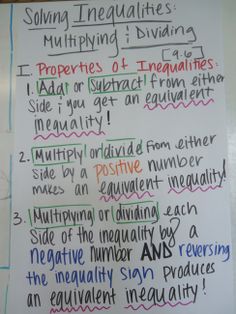 Solving Inequalities:
Multiplying & Dividing
[9.6]
I. Properties of Inequalities:
1. Add or Subtract from either
side ; you get an equivalent
inequality!
2. Multiply or divide from either
side by a positive number
makes an equivalent inequality!
3. Multiplying or dividing each
side of the inequality by a
negative number AND reversing
the inequality sign produces
an equivalent inequality!